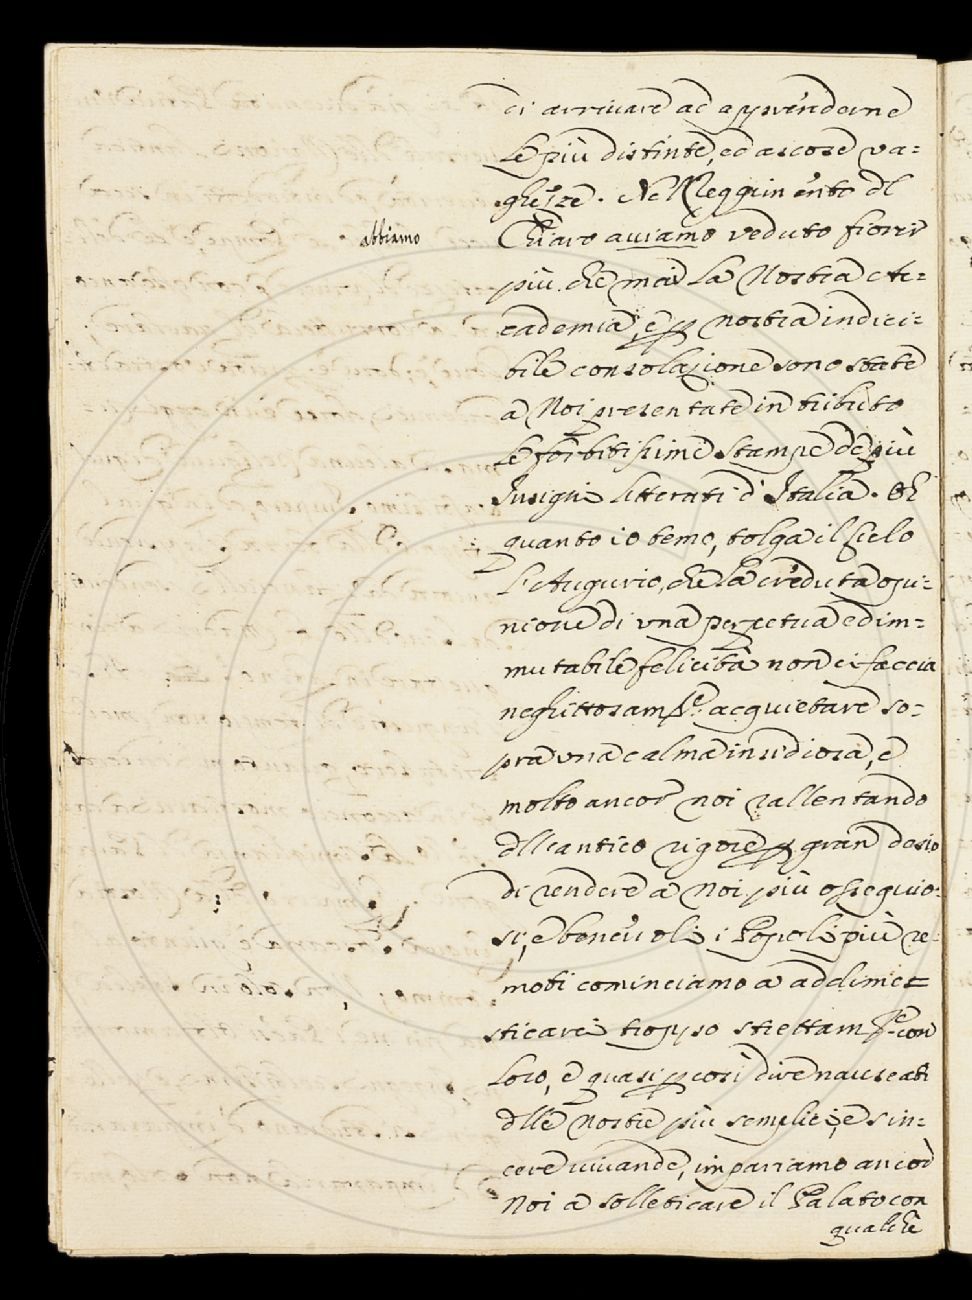 di arrivare ad apprenderne
le più distinte, ed ascose va=
ghezze. Nel Reggimento dl
abbiamo
Chiaro aviamo veduto fiorir
più che mai la Nostra Ac=
cademia, e p nostra indici=
bile consolazione sono state
a Noi presentate in tributo
le forbitissime stampe de più
Insigni litterati d'Italia. Oh
quanto io temo, tolga il Cielo
l'Augurio, che la creduta opi=
nione di una perpetua ed im=
mutabile felicità non ci faccia
neghittosamte acquietare so=
pra una calma insidiosa, e
molto ancor noi rallentando
dll antico rigore p gran desio
di rendere a noi più ossequio=
si, e benevoli i Popoli più re=
moti cominciamo a addime=
sticarci troppo strettamte con
loro, e quasi p così dire nauseati
dlle nostre più semplici, e sin=
cere vivande, impariamo ancor
Noi a solleticare il Palato con
qualche